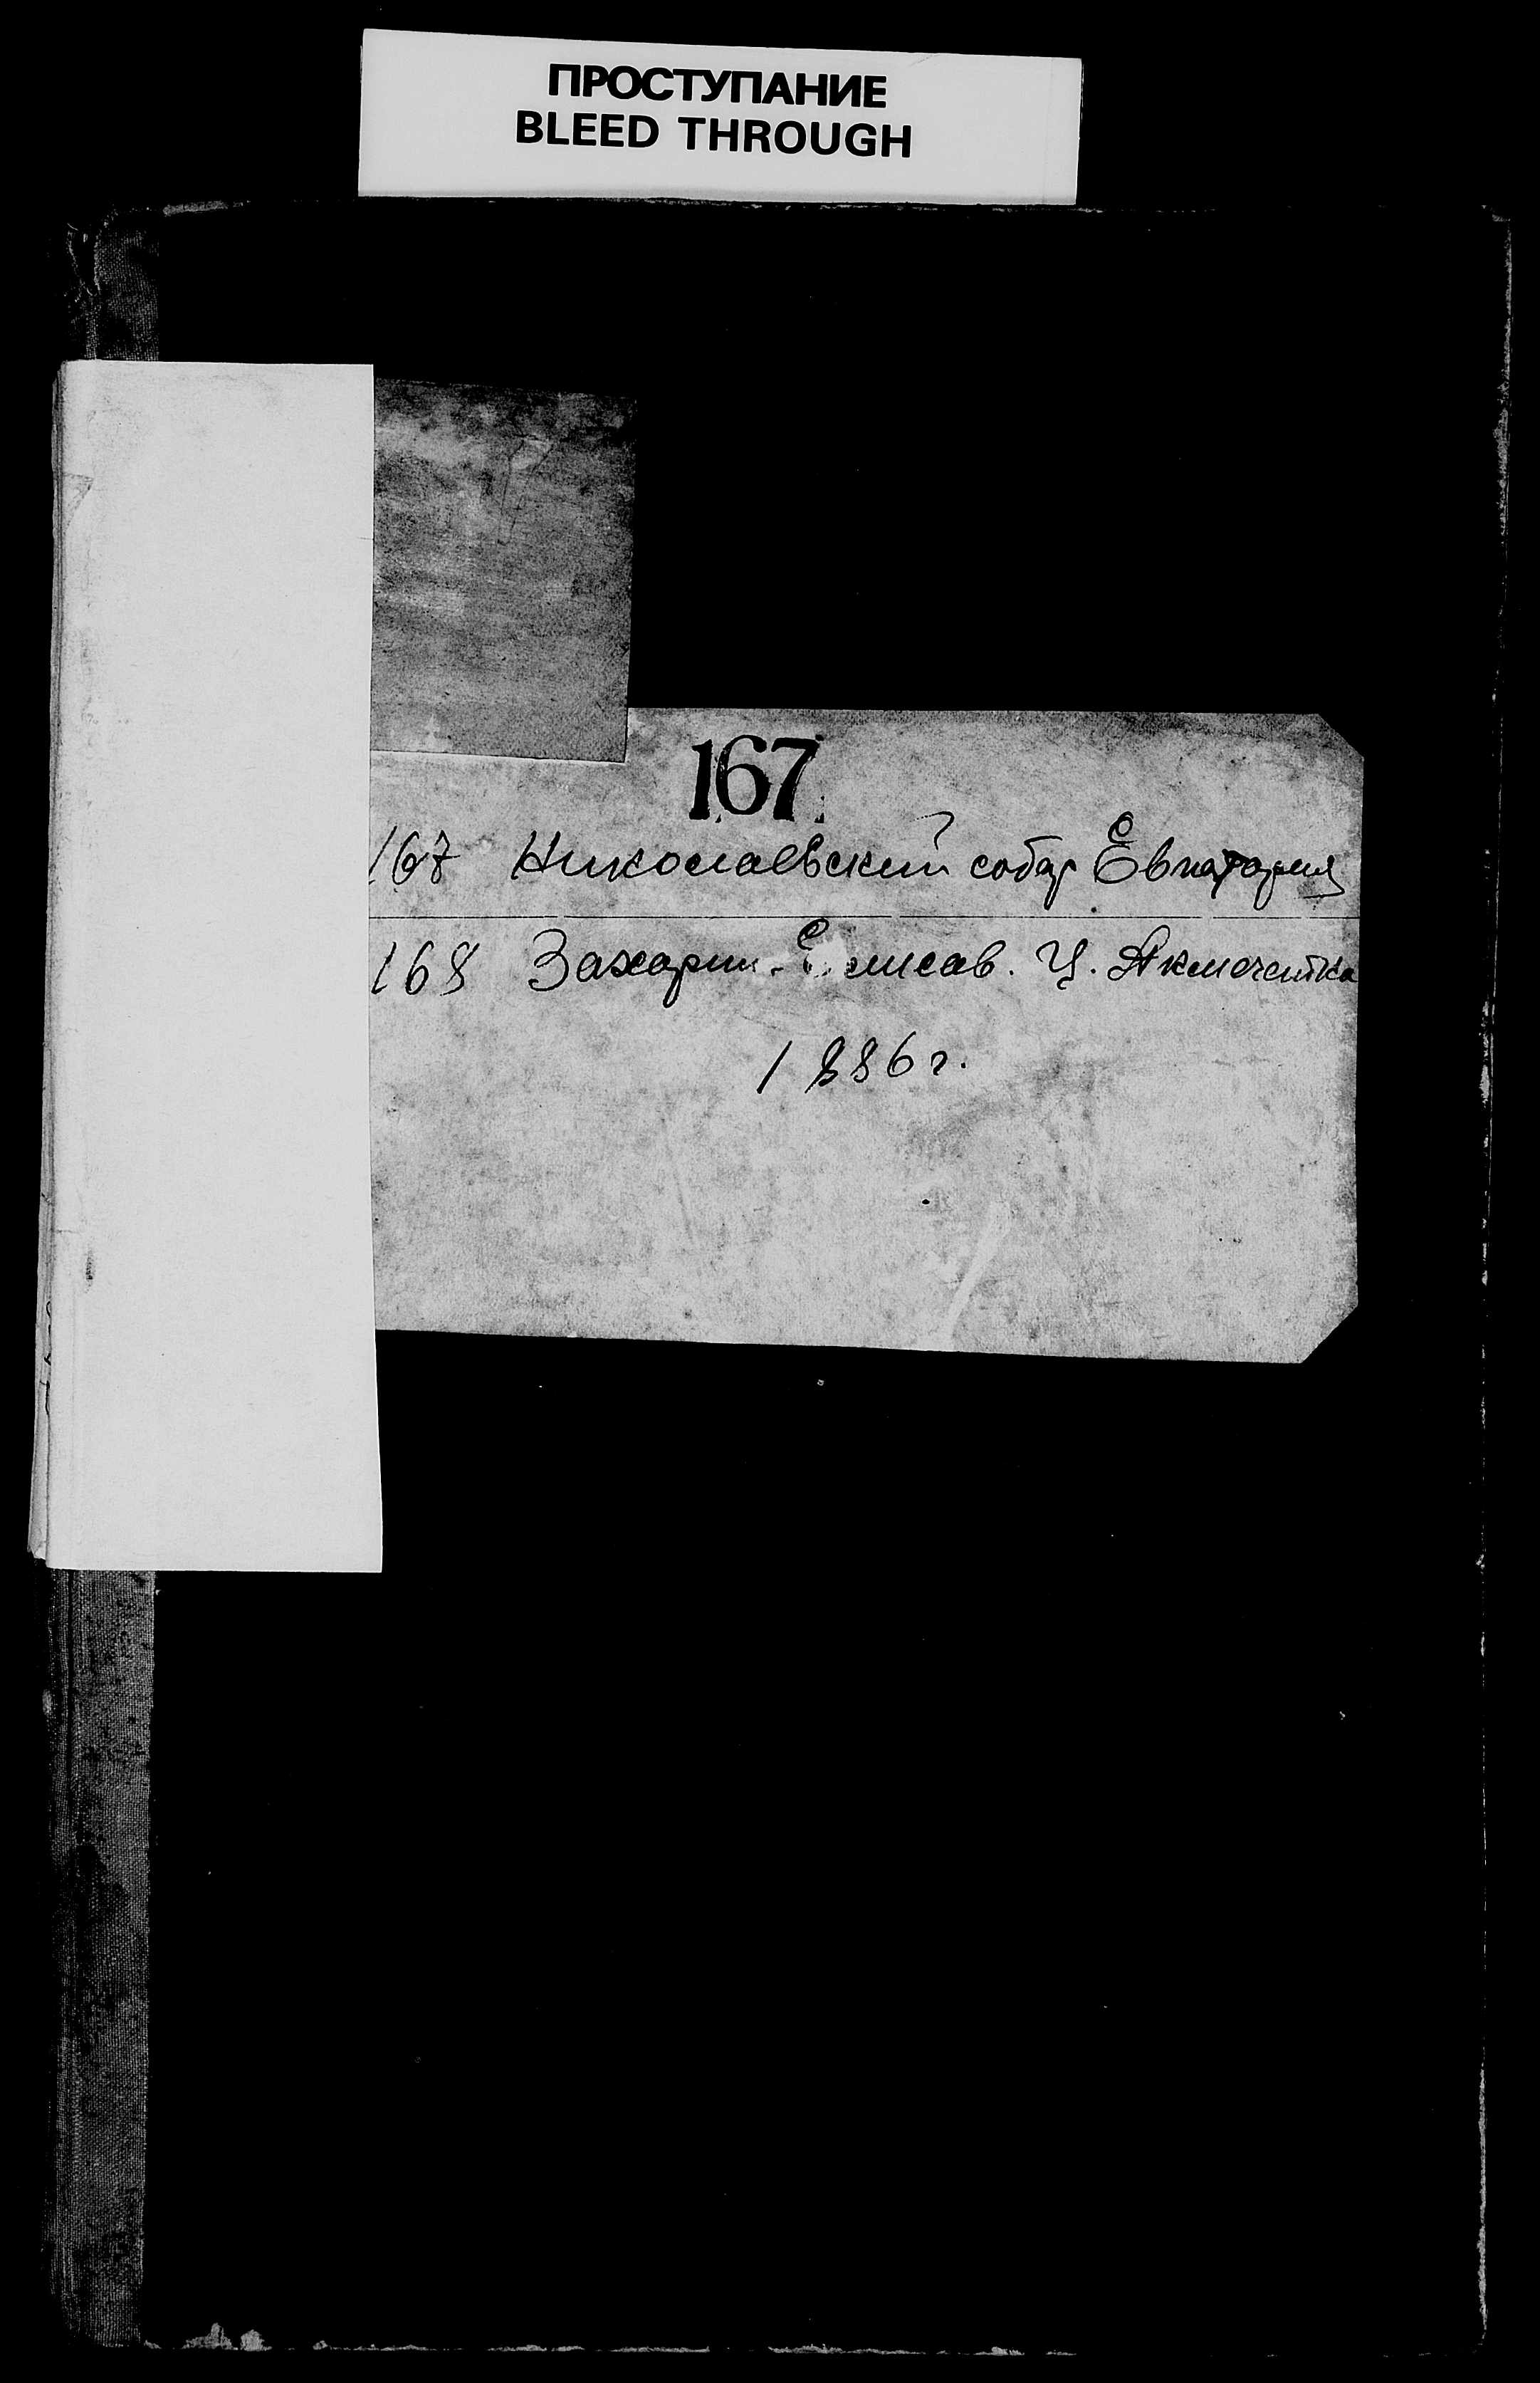 ПРОСТУПАНИЕ
BLEED THROUGH
167
167 Николаевский собор Евпатория
168 Захарии-Елисав. Ц. Акмечетка
1886 г.